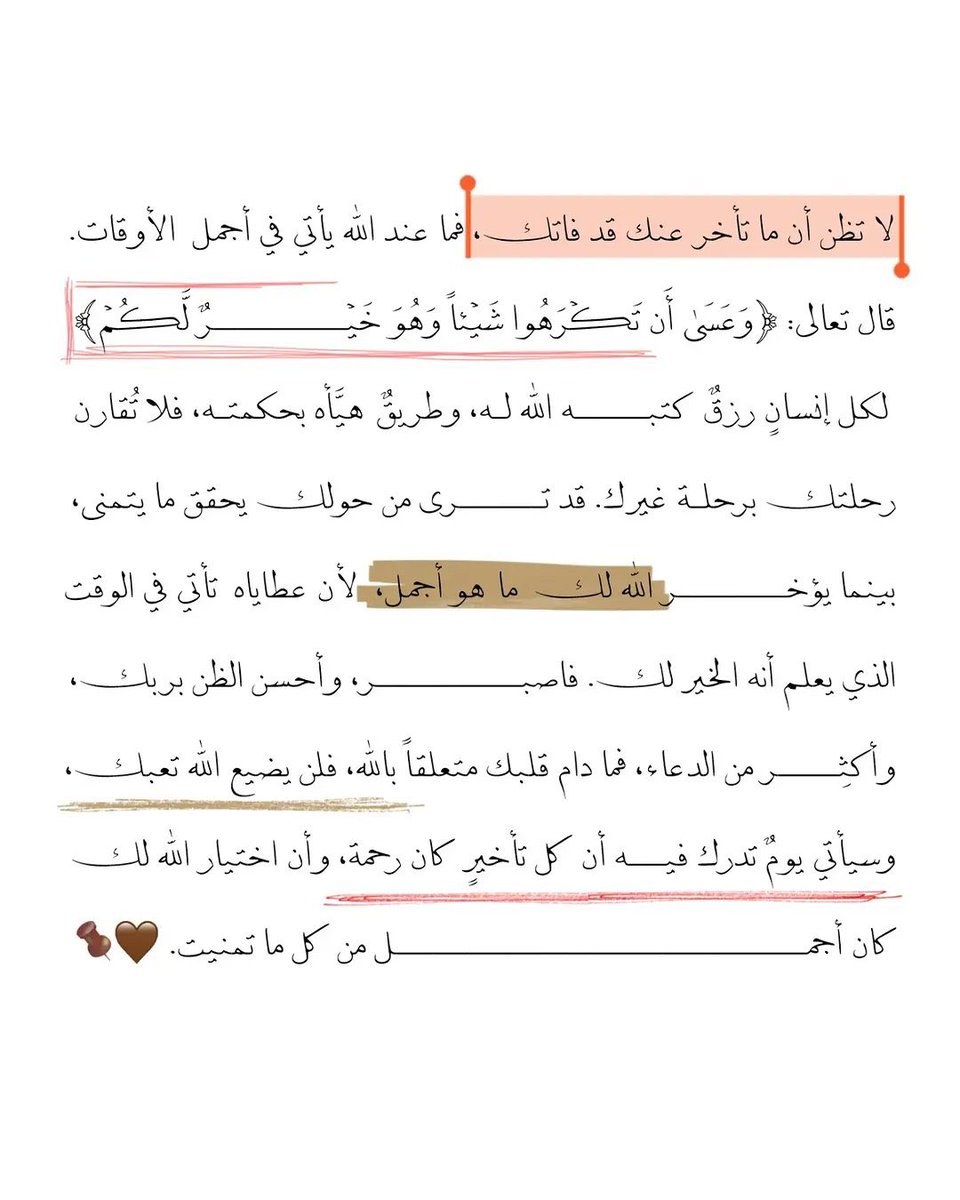 لا تظن أن ما تأخر عنك قد فاتك، فما عند الله يأتي في أجمل الأوقات.
قال تعالى: ﴿وَعَسَىٰ أَن تَكْرَهُوا شَيْئاً وَهُوَ خَيْرٌ لَّكُمْ﴾
لكل إنسانٍ رزقٌ كتبه الله له، وطريقٌ هيَّأه بحكمته، فلا تُقارن
رحلتك برحلة غيرك. قد ترى من حولك يحقق ما يتمنى،
بينما يؤخر الله لك ما هو أجمل، لأن عطاياه تأتي في الوقت
الذي يعلم أنه الخير لك. فاصبر، وأحسن الظن بربك،
وأكثِر من الدعاء، فما دام قلبك متعلقاً بالله، فلن يضيع الله تعبك،
وسيأتي يومٌ تدرك فيه أن كل تأخيرٍ كان رحمة، وأن اختيار الله لك
كان أجمل من كل ما تمنيت. 🤎📌